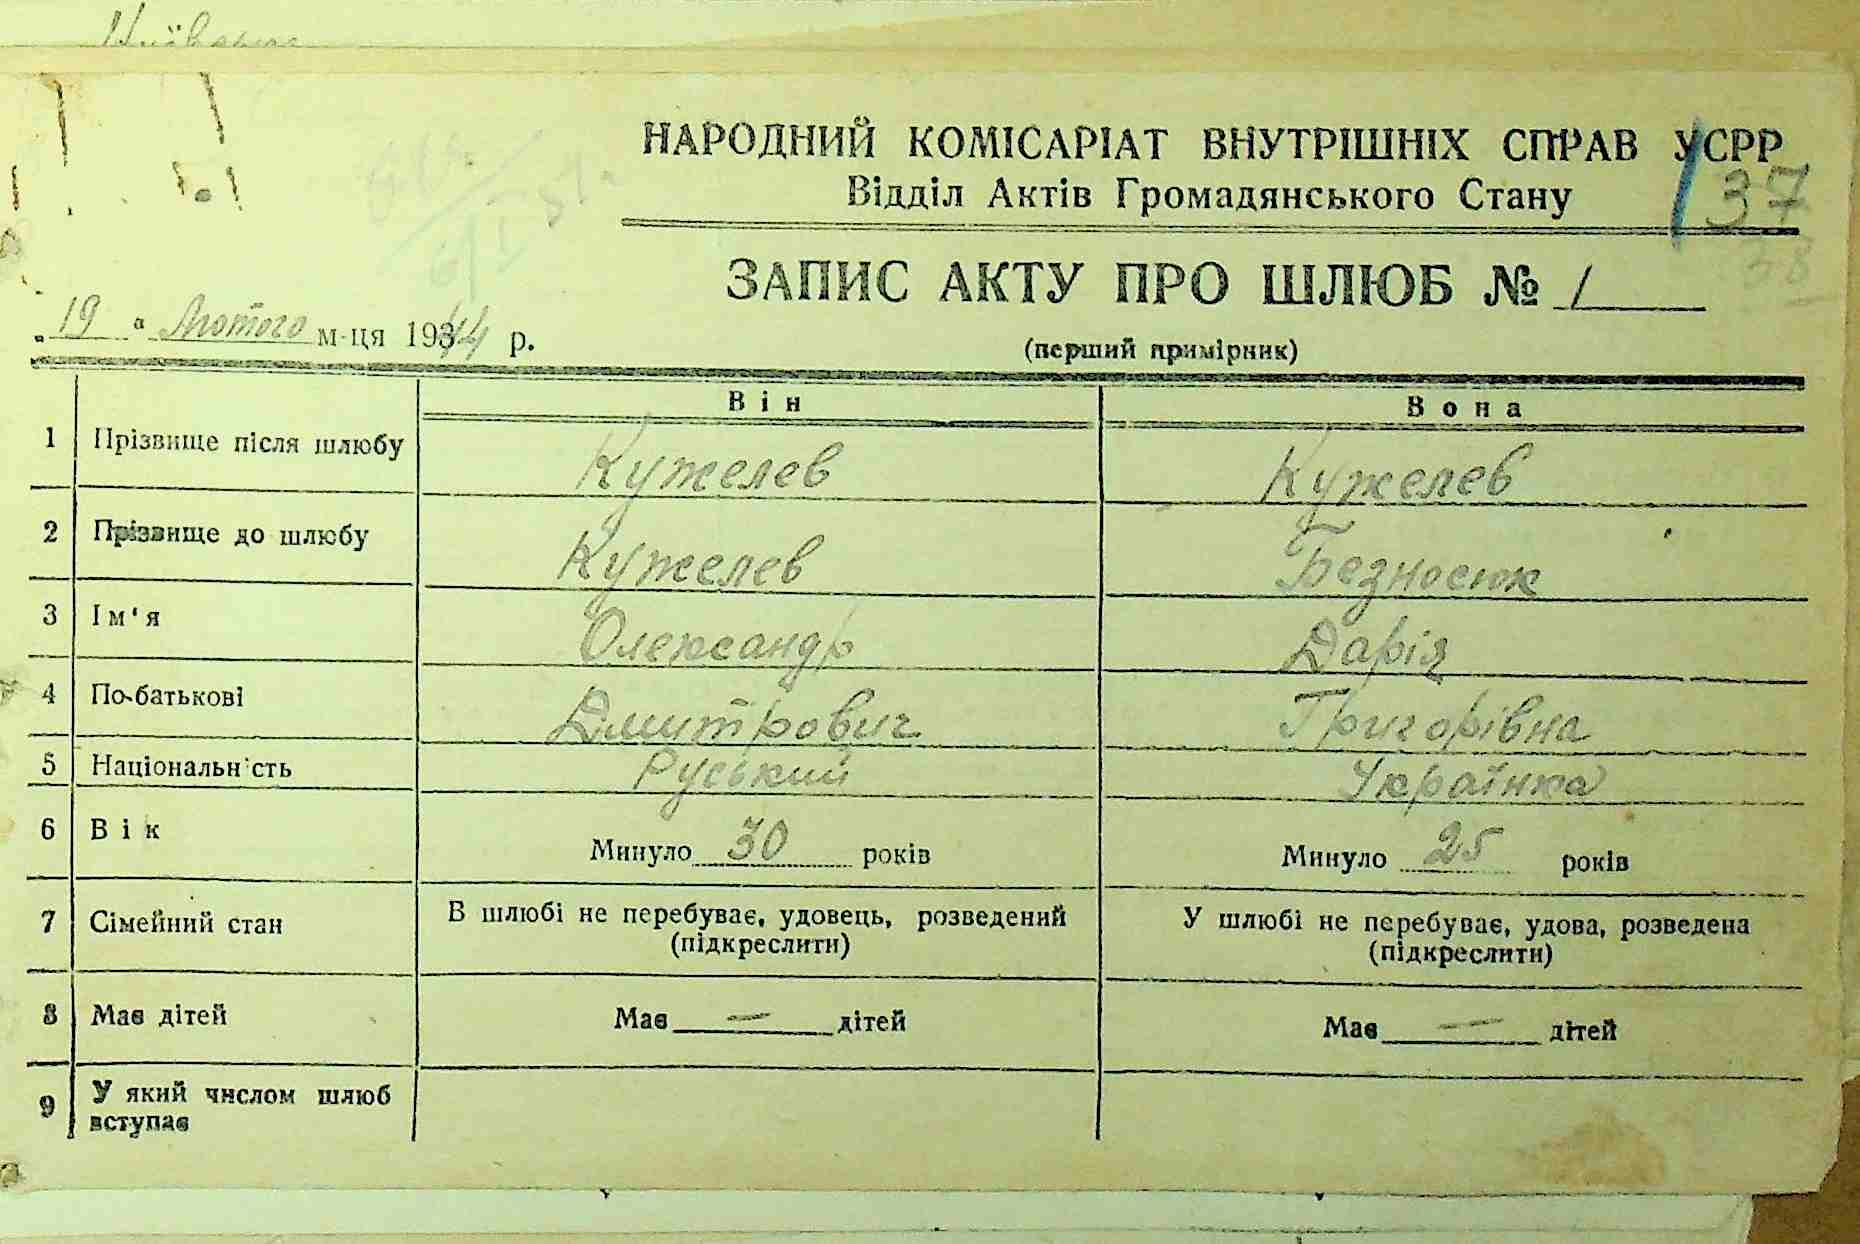 НАРОДНИЙ КОМІСАРІАТ ВНУТРІШНІХ СПРАВ УСРР
Відділ Актів Громадянського Стану
37
38
ЗАПИС АКТУ ПРО ШЛЮБ № 1
(перший примірник)
„19" Лютого м-ця 1944 р.
Він Вона
1 Прізвище після шлюбу Кужелев Кужелев
2 Прізвище до шлюбу Кужелев Безносюк
3 Ім'я Олександр Дарія
4 По-батькові Дмитрович Григорівна
5 Національність Руський Українка
6 Вік Минуло 30 років Минуло 25 років
7 Сімейний стан В шлюбі не перебуває, удовець, розведений (підкреслити) У шлюбі не перебуває, удова, розведена (підкреслити)
8 Має дітей Має — дітей Має — дітей
9 У який числом шлюб
вступає